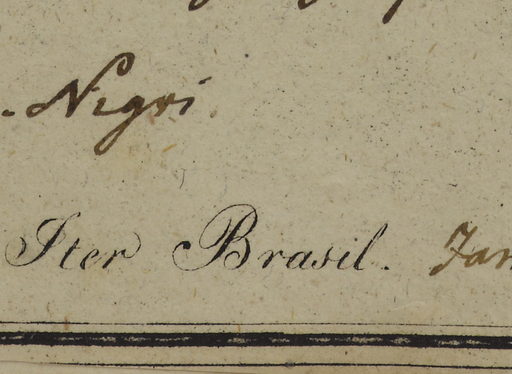 Nigri
Iter Brasil. Jan